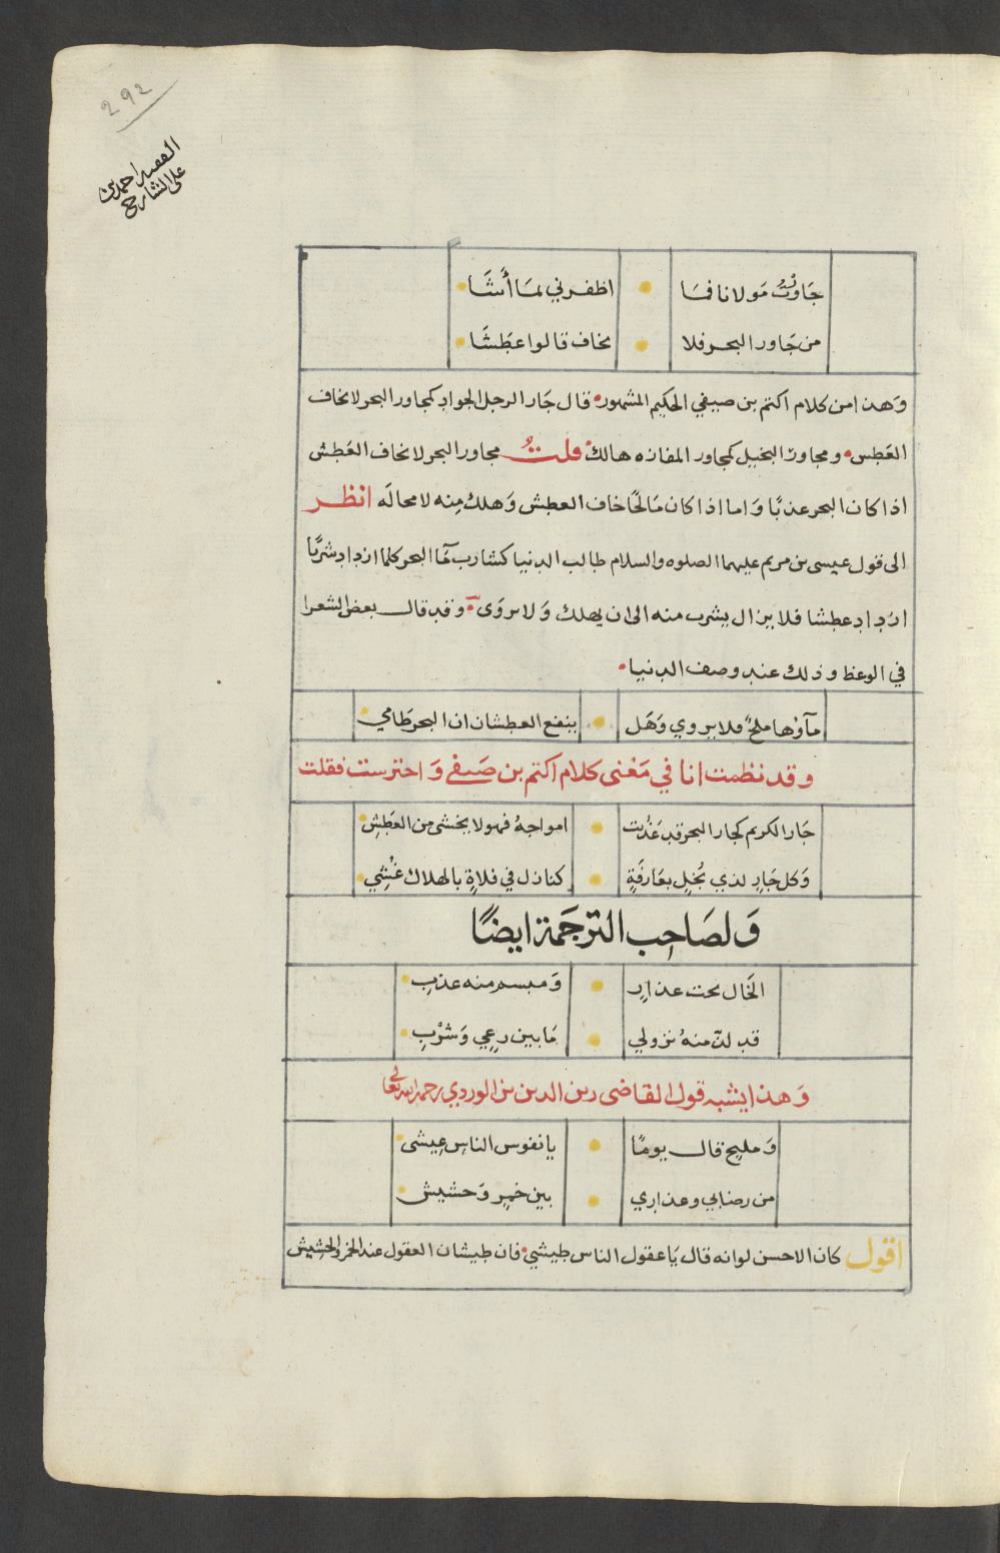 292
الفقير احمد بن
على الشارح
جَاوَرْتُ مَولانا فمَا • اظفرني لمَا أَشَا •
من جَاور البحر فلا • يخاف قالوا عطَشَا •
وَهذا من كلام اكتم بن صيفي الحكيم المشهور • قال جَار الرجل الجواد كمجاور البحر لا يخاف
العَطِس • ومجاور البخيل كمجاور المفازه هالك • قلتُ مجاور البحر لا يخاف العَطِش
اذا كان البحر عذبًا وَاما اذا كان مَالحًا خاف العطش وَهلك مِنه لا محالَه انظر
الى قول عيسى بن مريم عليهما الصلوه والسلام طالب الدنيا كشارب مآ البحر كلما ازداد شربًا
ازداد عطشا فلا يزال يشرب منه الى ان يهلك وَلا يروَى • وقد قال بعض الشعرا
في الوعظ وذلك عند وصف الدنيا •
مآؤها ملحٌ فلا يروي وَهَل • ينفع العطشان ان البحر طَامي •
وقد نظمت انا في مَعْنى كلام اكتم بن صَيفي وَاحترست فقلت
جَار الكريم كجار البحر قد عَذُبت • امواجهُ فهو لا يخشى من العَطَشِ •
وَكل جَارٍ لذي بُخلٍ بعَارفَةٍ • كنازل في فلاةٍ بالهلاك غُشِي •
وَلصَاحِب التَرجَمة ايضًا
الخَال تحت عذارٍ • وَمبسم منه عذبِ •
قد لذّ منهُ نزولي • مَا بين رعِي وَشُرْبِ •
وَهذا يشبه قول القاضى زين الدين بن الوردي رحمه الله تعالى
وَمليح قال يومًا • يا نفوس الناس عِيشى •
من رضابي وعذاري • بين خمرٍ وَحشيش •
اقول كان الاحسن لو انه قال يَا عقول الناس طيشي • فان طيشان العقول عند الخمر والحشيش